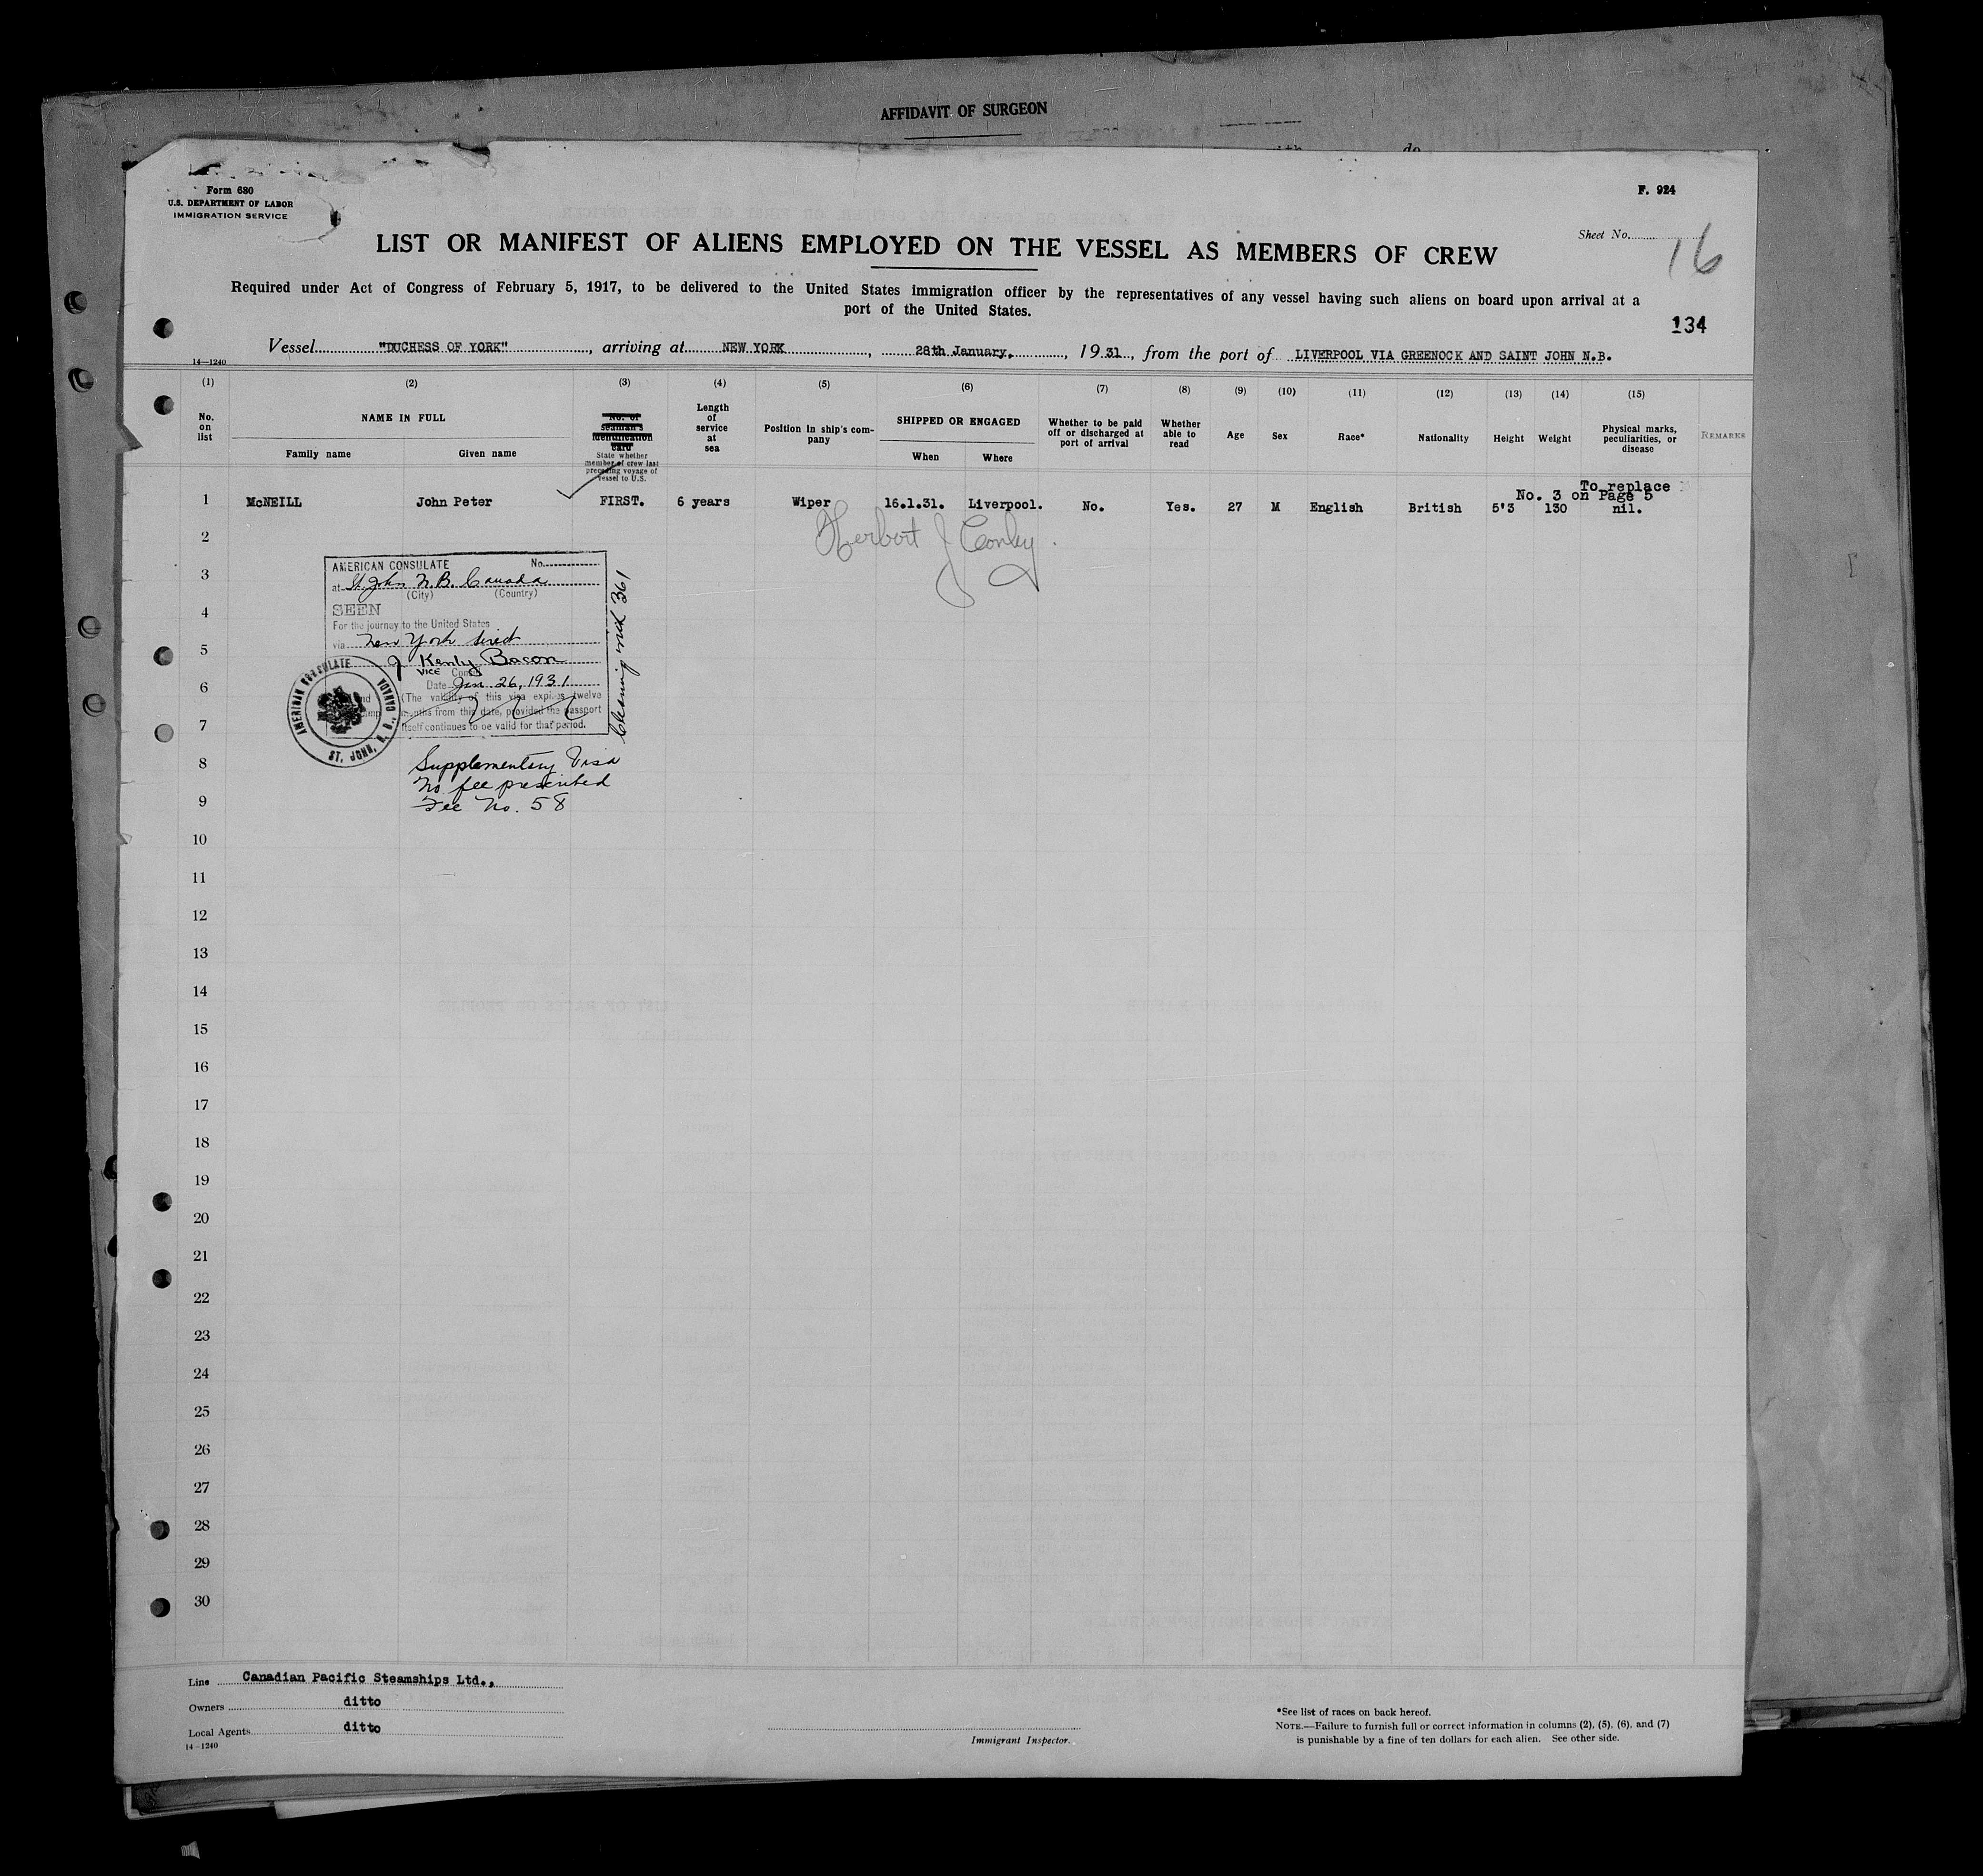 AFFIDAVIT OF SURGEON
Form 680
U.S. DEPARTMENT OF LABOR
IMMIGRATION SERVICE
F. 924
Sheet No. 16
LIST OR MANIFEST OF ALIENS EMPLOYED ON THE VESSEL AS MEMBERS OF CREW
Required under Act of Congress of February 5, 1917, to be delivered to the United States immigration officer by the representatives of any vessel having such aliens on board upon arrival at a
port of the United States.
134
Vessel "DUCHESS OF YORK", arriving at NEW YORK, 28th January, 1931, from the port of LIVERPOOL VIA GREENOCK AND SAINT JOHN N.B.
14—1240
(1) (2) (3) (4) (5) (6) (7) (8) (9) (10) (11) (12) (13) (14) (15)
No. on list
NAME IN FULL
Family name Given name
No. of seaman's identification card
State whether member of crew last preceding voyage of vessel to U.S.
Length of service at sea
Position in ship's company
SHIPPED OR ENGAGED
When Where
Whether to be paid off or discharged at port of arrival
Whether able to read
Age
Sex
Race*
Nationality
Height
Weight
Physical marks, peculiarities, or disease
REMARKS
To replace
No. 3 on Page 5
1 McNEILL John Peter FIRST. 6 years Wiper 16.1.31. Liverpool. No. Yes. 27 M English British 5'3 130 nil.
2
Herbert J Conley.
3
4
5
6
7
8
9
AMERICAN CONSULATE No.
at St. John N.B. Canada
(City) (Country)
SEEN
For the journey to the United States
via New York direct
J Kenly Bacon
VICE Consul
Date Jan 26, 1931
(The validity of this visa expires twelve
months from this date, provided the passport
itself continues to be valid for that period.
361
AMERICAN CONSULATE
ST. JOHN, N.B., CANADA
Supplementary Visa
No fee prescribed
Fee No. 58
10
11
12
13
14
15
16
17
18
19
20
21
22
23
24
25
26
27
28
29
30
Line Canadian Pacific Steamships Ltd.,
Owners ditto
Local Agents ditto
14—1240
Immigrant Inspector.
*See list of races on back hereof.
NOTE.—Failure to furnish full or correct information in columns (2), (5), (6), and (7)
is punishable by a fine of ten dollars for each alien. See other side.